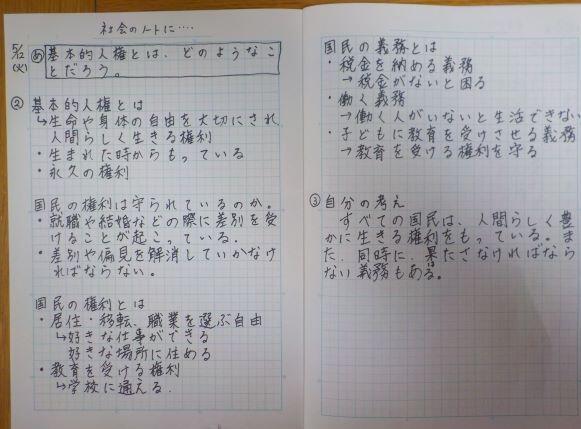 社会のノートに‥‥
5/12
(火)
め 基本的人権とは、どのようなこ
とだろう。
② 基本的人権とは
↳生命や身体の自由を大切にされ、
人間らしく生きる権利
・生まれた時からもっている
・永久の権利
国民の権利は守られているのか。
・就職や結婚などの際に差別を受
けることが起こっている.
・差別や偏見を解消していかなけ
ればならない。
国民の権利とは
・居住・移転、職業を選ぶ自由
↳好きな仕事ができる
好きな場所に住める
・教育を受ける権利
↳学校に通える.
国民の義務とは
・税金を納める義務
→税金がないと困る
・働く義務
→働く人がいないと生活できない
・子どもに教育を受けさせる義務
→教育を受ける権利を守る
③ 自分の考え
すべての国民は、人間らしく豊
かに生きる権利をもっている。ま
た、同時に、果たさなければなら
ない義務もある。